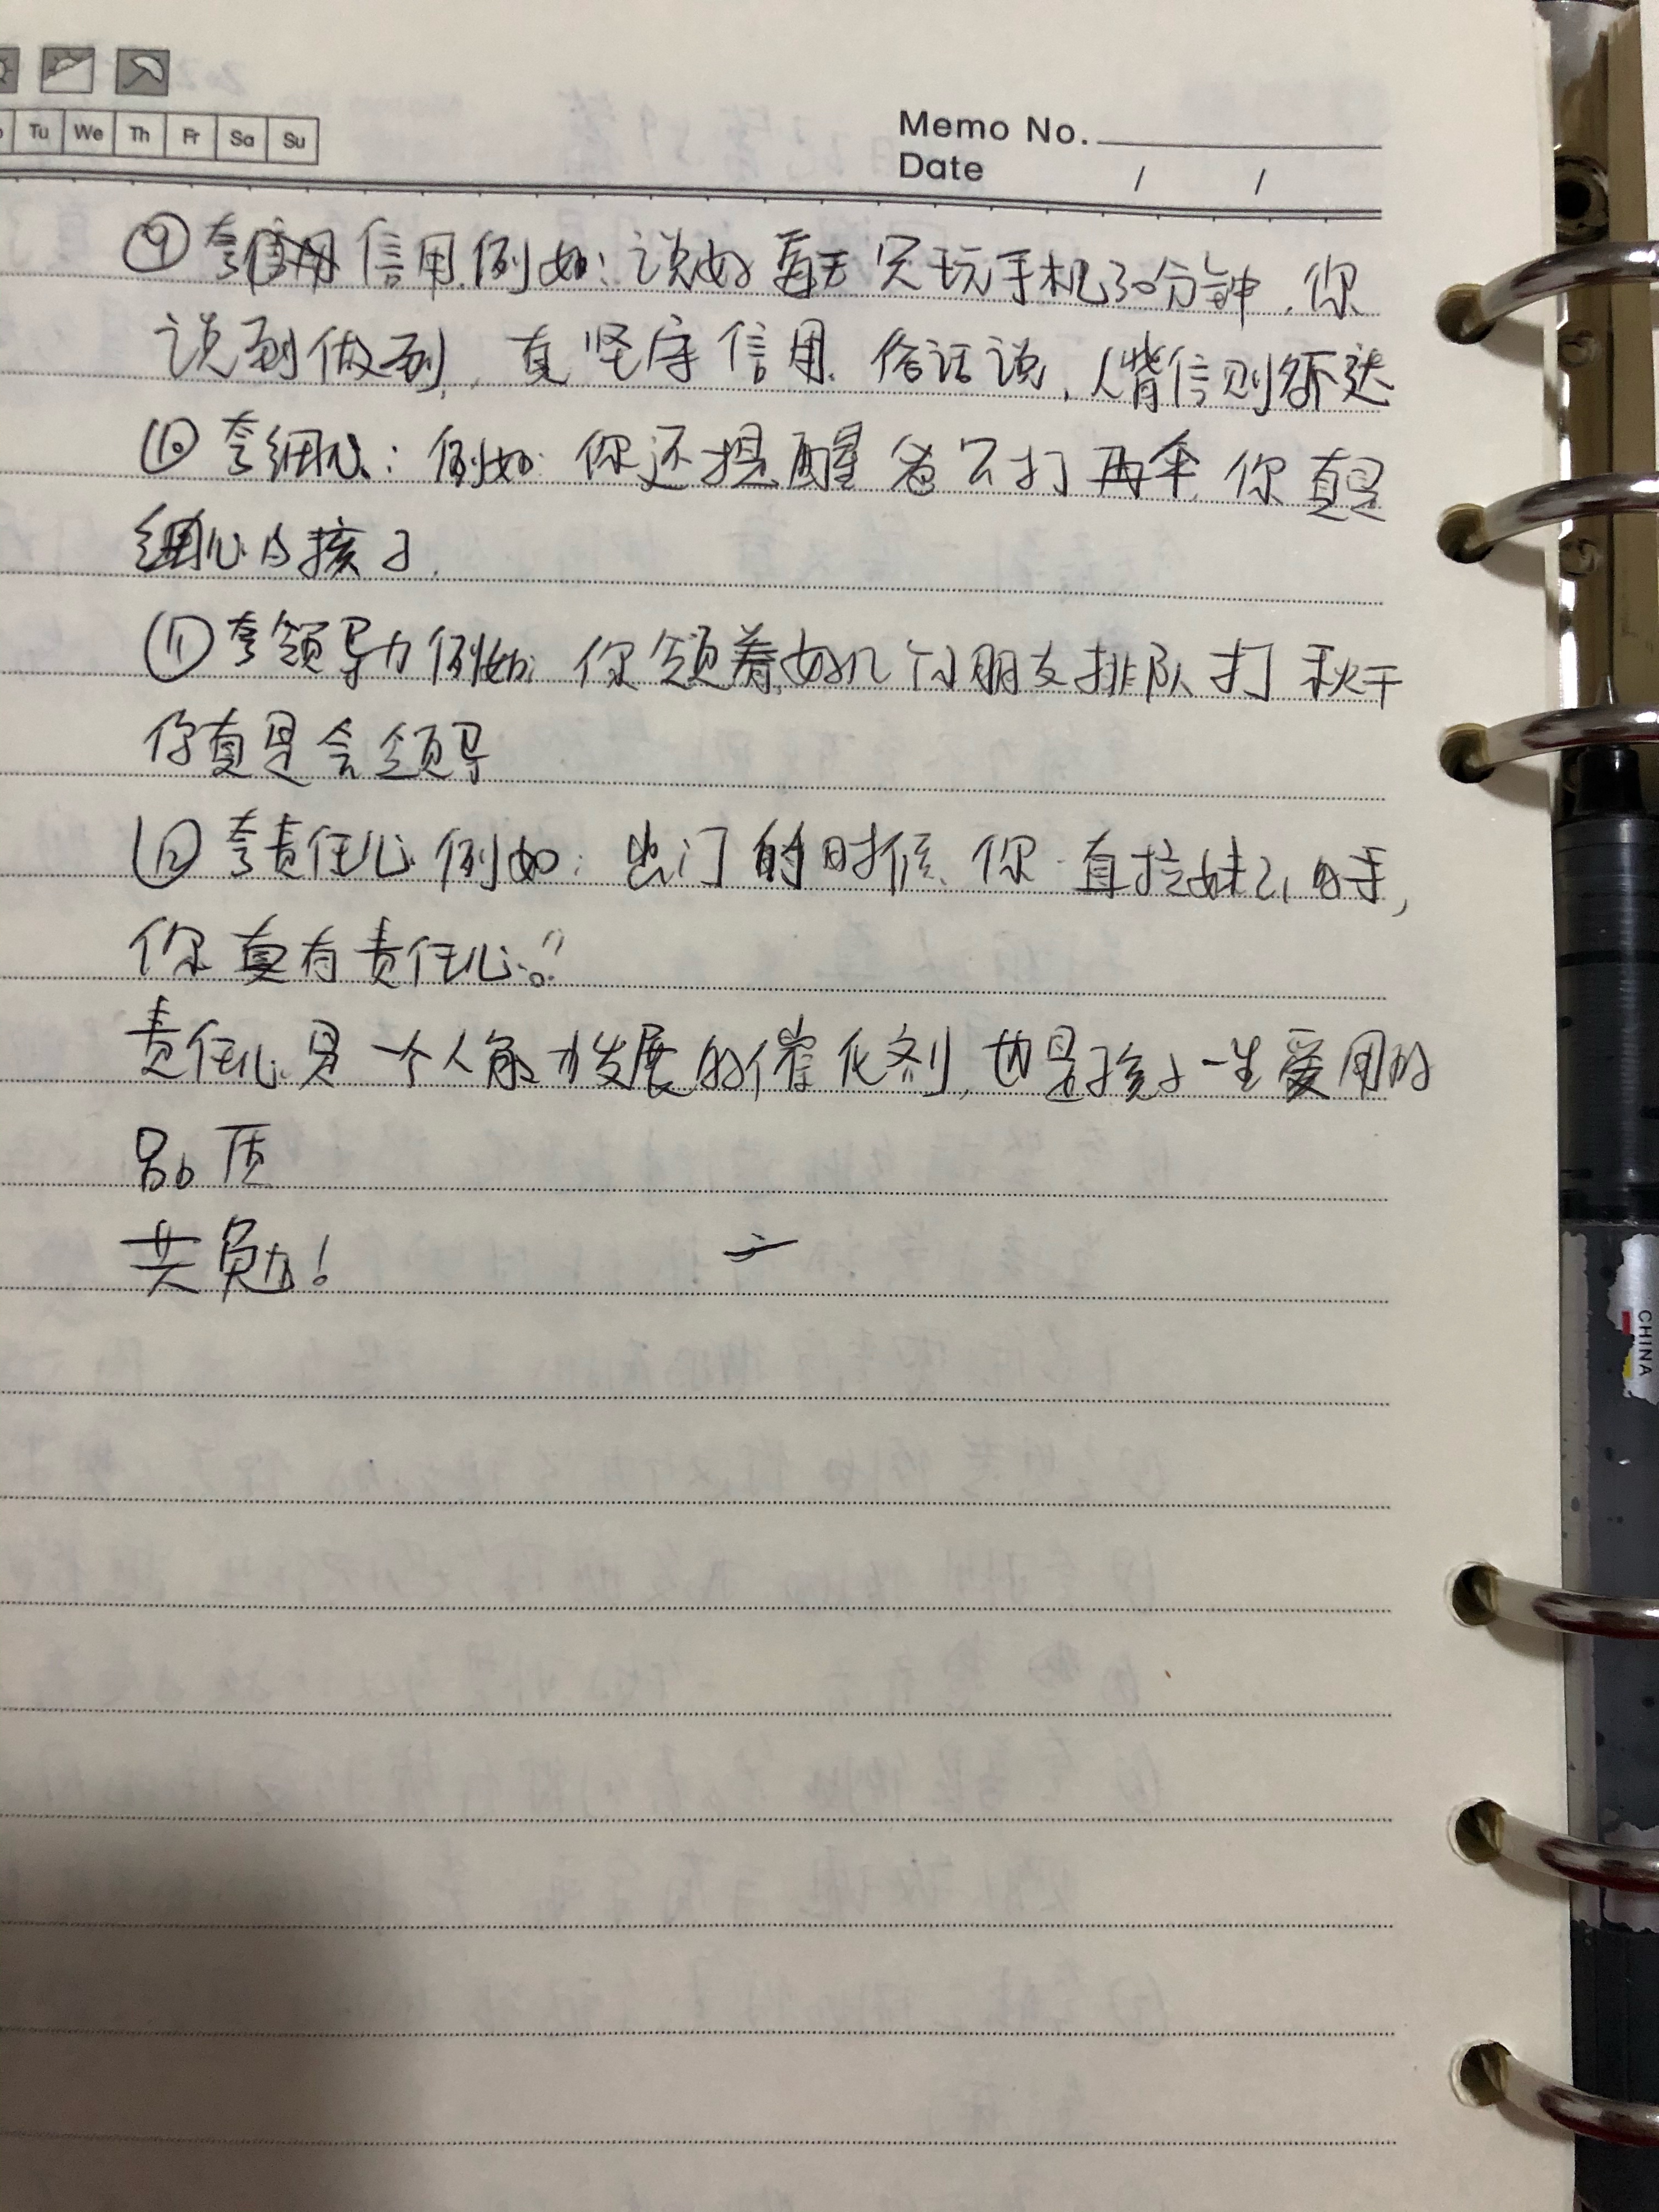 Tu We Th Fr Sa Su
Memo No.
Date / /
⑨夸信用 信用.例如:说好每天只玩手机30分钟,你
说到做到,真坚守信用.俗话说,人背信则名不达
⑩夸细心:例如:你还提醒爸爸打雨伞,你真是
细心的孩子.
⑪夸领导力 例如:你领着好几个小朋友排队打秋千
你真是会领导
⑫夸责任心 例如:出门的时候,你一直拉妹妹的手,
你真有责任心。"
责任心是一个人能力发展的催化剂,也是孩子一生爱用的
品质
共勉!
CHINA